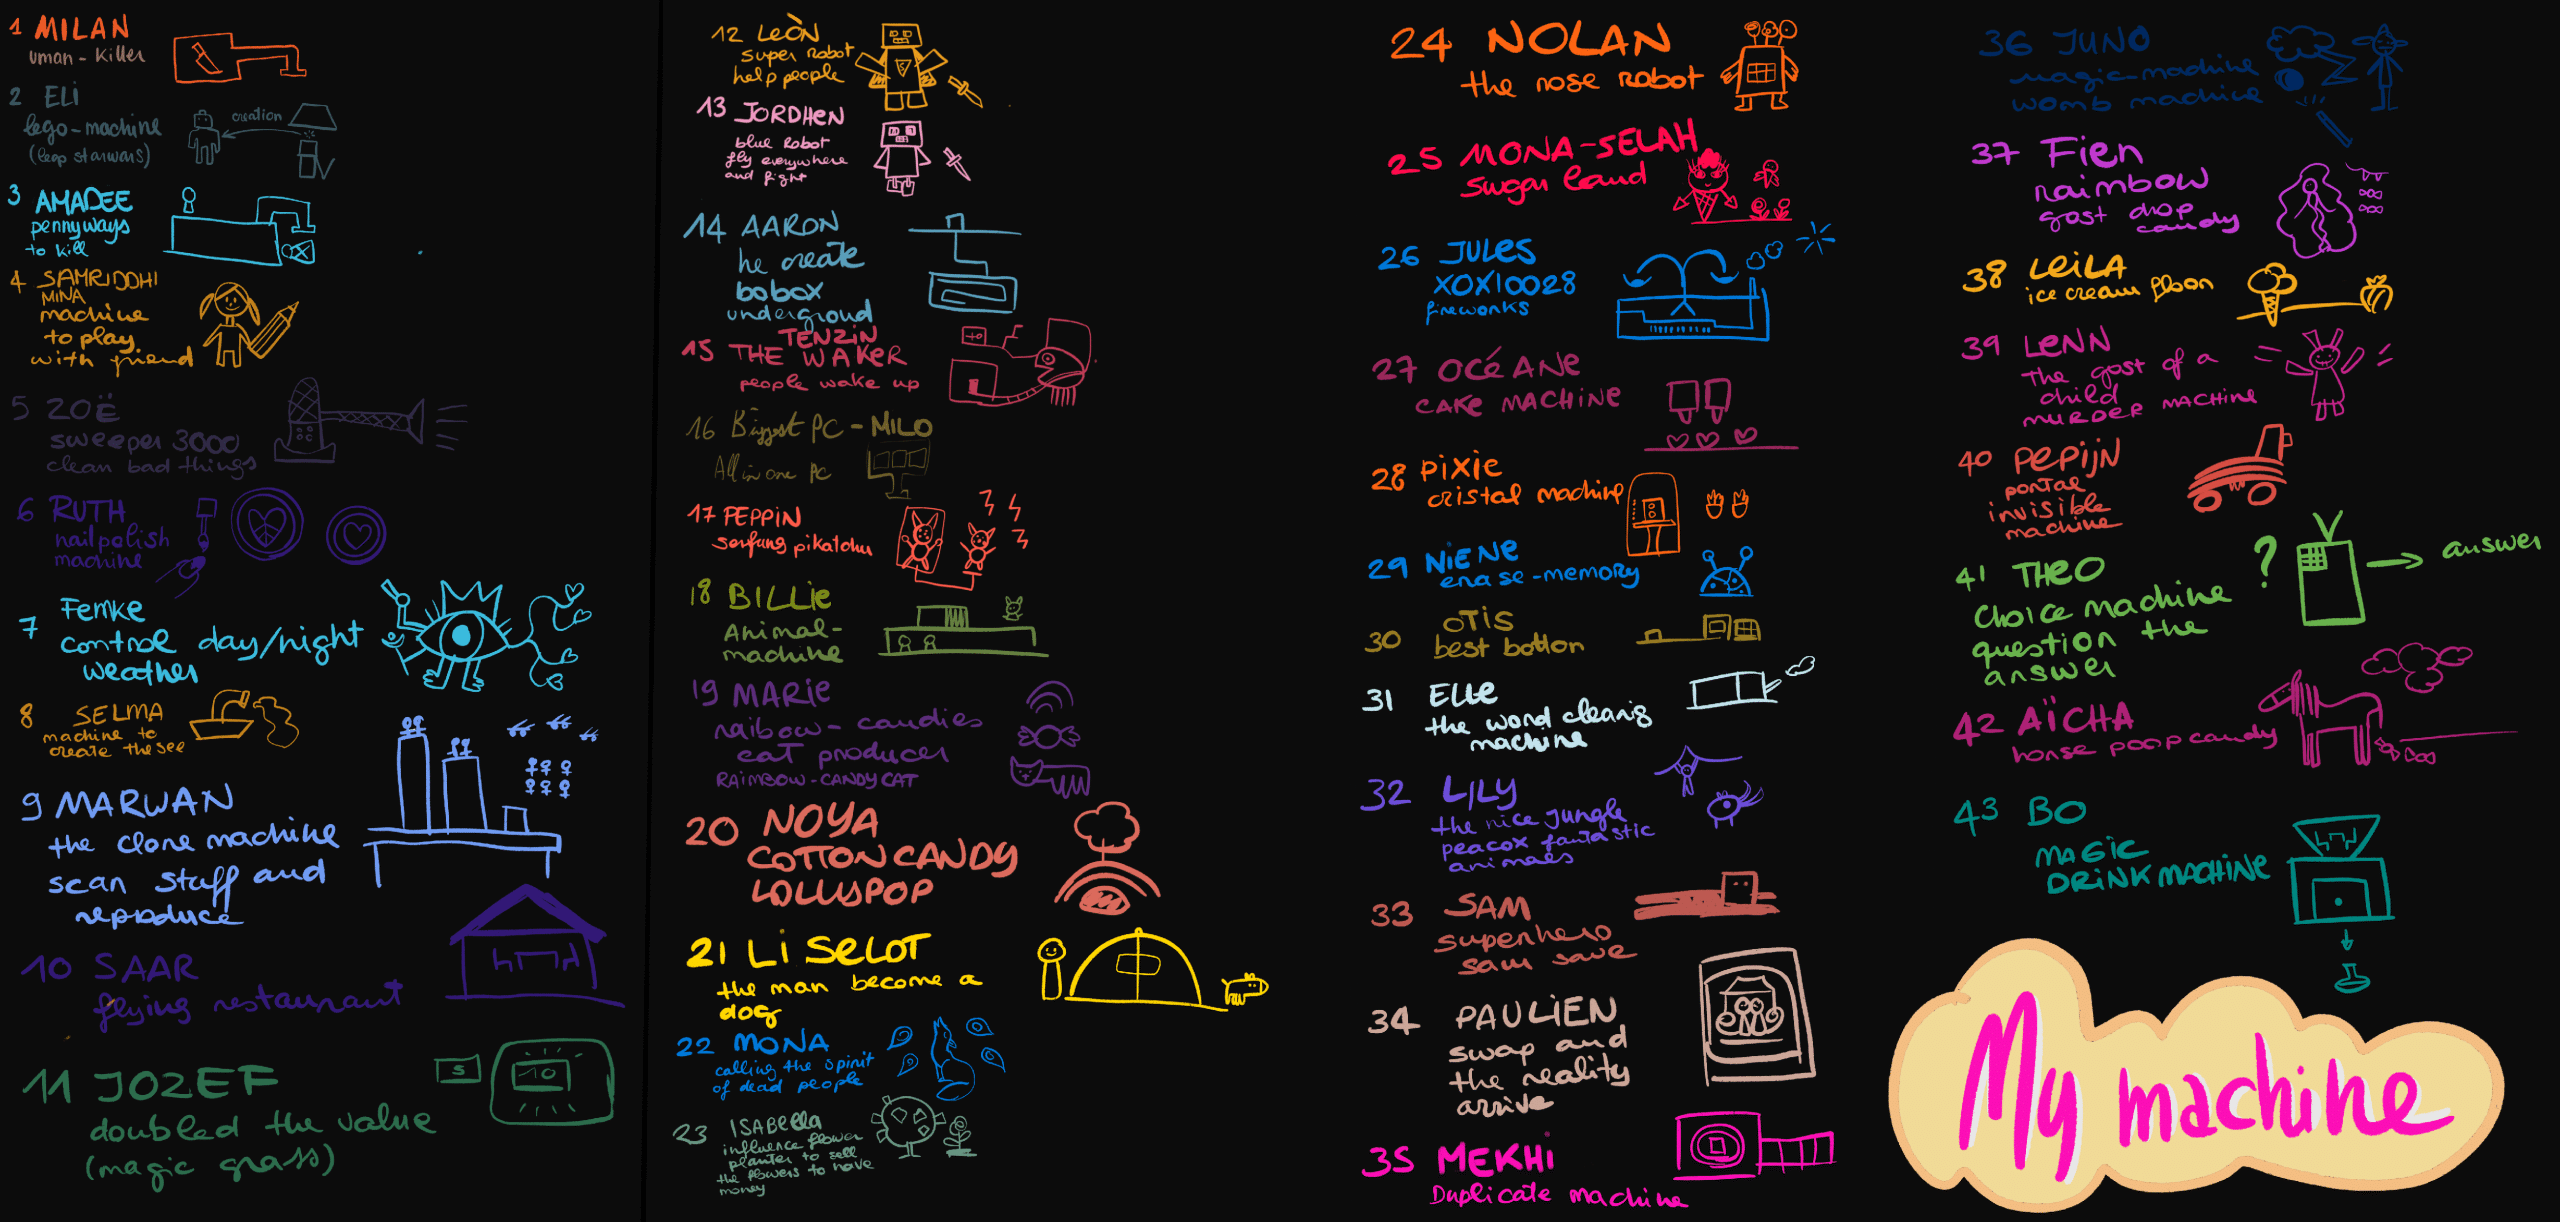 1 MILAN
uman - killer
2 ELI
lego-machine
(leap starwars)
creation
3 AMADEE
pennyways
to kill
4 SAMRIDDHI
MINA
machine
to play
with friend
5 ZOË
sweeper 3000
clean bad things
6 RUTH
nailpolish
machine
7 Femke
control day/night
weather
8 SELMA
machine to
create the see
9 MARWAN
the clone machine
scan staff and
reproduce
10 SAAR
flying restaurant
11 JOZEF
doubled the value
(magic grass)
5
10
12 LEÒN
super robot
help people
13 JORDHEN
blue robot
fly everywhere
and fight
14 AARON
he create
bobox
undergroud
TENZIN
15 THE WAKER
people wake up
16 Biggest PC - MILO
All in one PC
17 PEPPIN
serfang pikatchu
18 BILLIE
Animal-
machine
19 MARIE
raibow - candies
cat producer
RAIMBOW - CANDY CAT
20 NOYA
COTTON CANDY
LOLLYPOP
21 LISELOT
the man become a
dog
22 MONA
calling the spirit
of dead people
23 ISABELLA
influence flower
planter to sell
the flowers to have
money
24 NOLAN
the nose robot
25 MONA-SELAH
sugar land
26 JULES
XOX10028
fireworks
27 OCÉANE
CAKE MACHINE
28 PIXIE
cristal machine
29 NIENE
erase-memory
30 OTIS
best botton
31 ELLE
the word cleanig
machine
32 LILY
the nice jungle
peacox fantastic
animals
33 SAM
superhero
sam save
34 PAULIEN
swap and
the reality
arrive
35 MEKHI
Duplicate machine
36 JUNO
magic-machine
womb machine
37 Fien
raimbow
gost drop
candy
38 LEILA
ice cream floon
39 LENN
the gost of a
child
MURDER MACHINE
40 PEPIJN
portal
invisible
machine
41 THEO
Choice machine
question the
answer
?
answer
42 AÏCHA
horse poop candy
43 BO
MAGIC
DRINK MACHINE
My machine